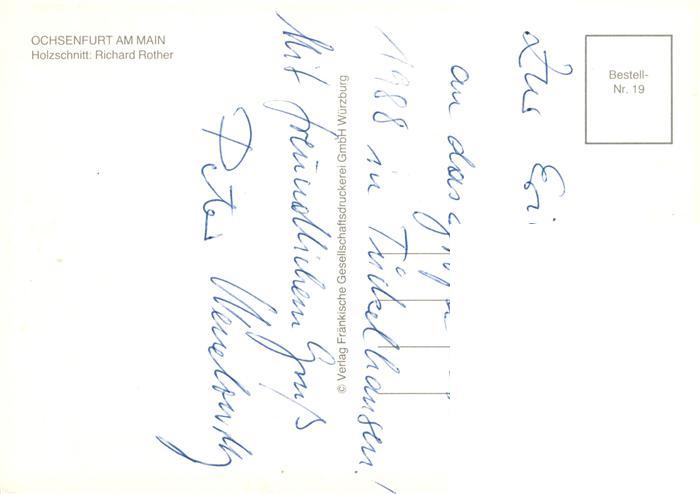 OCHSENFURT AM MAIN
Holzschnitt: Richard Rother
Bestell-
Nr. 19
© Verlag Fränkische Gesellschaftsdruckerei GmbH Würzburg
Zur
an das
1988 in Tückelhausen!
Mit freundlichem Gruß
Peter